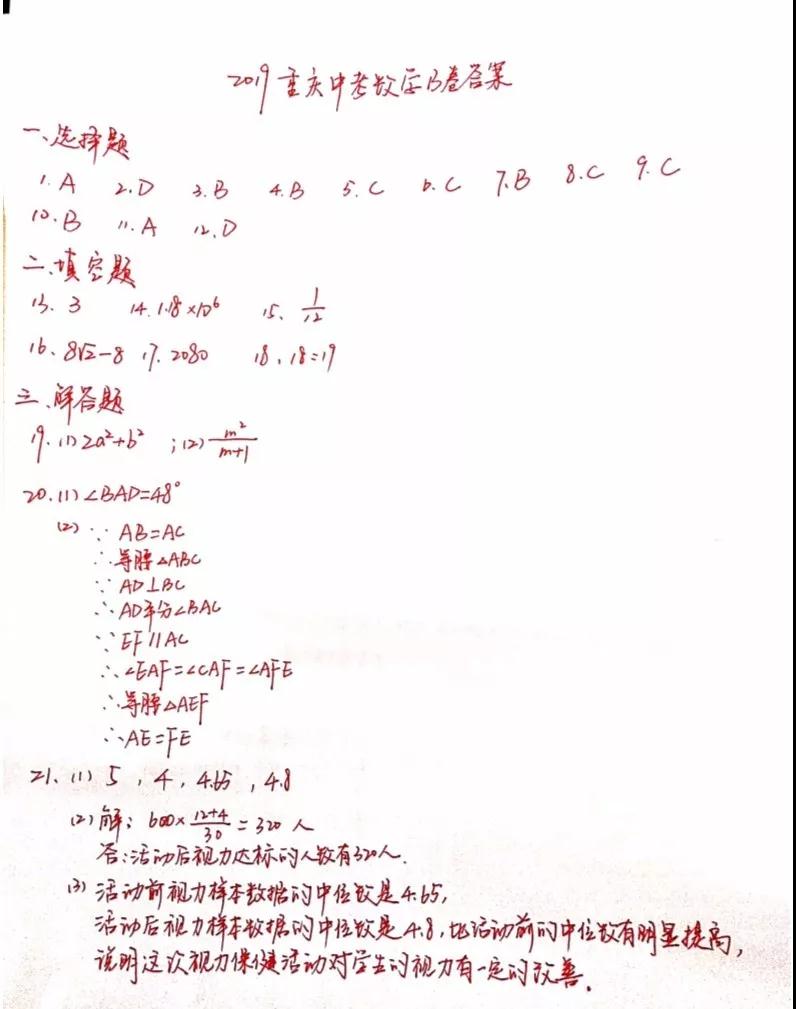 2019重庆中考数学B卷答案
一、选择题
1. A 2. D 3. B 4. B 5. C 6. C 7. B 8. C 9. C
10. B 11. A 12. D
二、填空题
13. 3 14. 1.18×10⁶ 15、 1/12
16、8√2-8 17. 2080 18、18:19
三、解答题
19. (1) 2a²+b² ; (2) m²/(m+1)
20. (1) ∠BAD=48°
(2) ∵ AB=AC
∴ 等腰△ABC
∵ AD⊥BC
∴ AD平分∠BAC
∵ EF∥AC
∴ ∠EAF=∠CAF=∠AFE
∴ 等腰△AEF
∴ AE=FE
21、(1) 5 , 4 , 4.65 , 4.8
(2) 解: 600×(12+4)/30=320人
答:活动后视力达标的人数有320人.
(3) 活动前视力样本数据的中位数是4.65,
活动后视力样本数据的中位数是4.8,比活动前的中位数有明显提高,
说明这次视力保健活动对学生的视力有一定的改善.